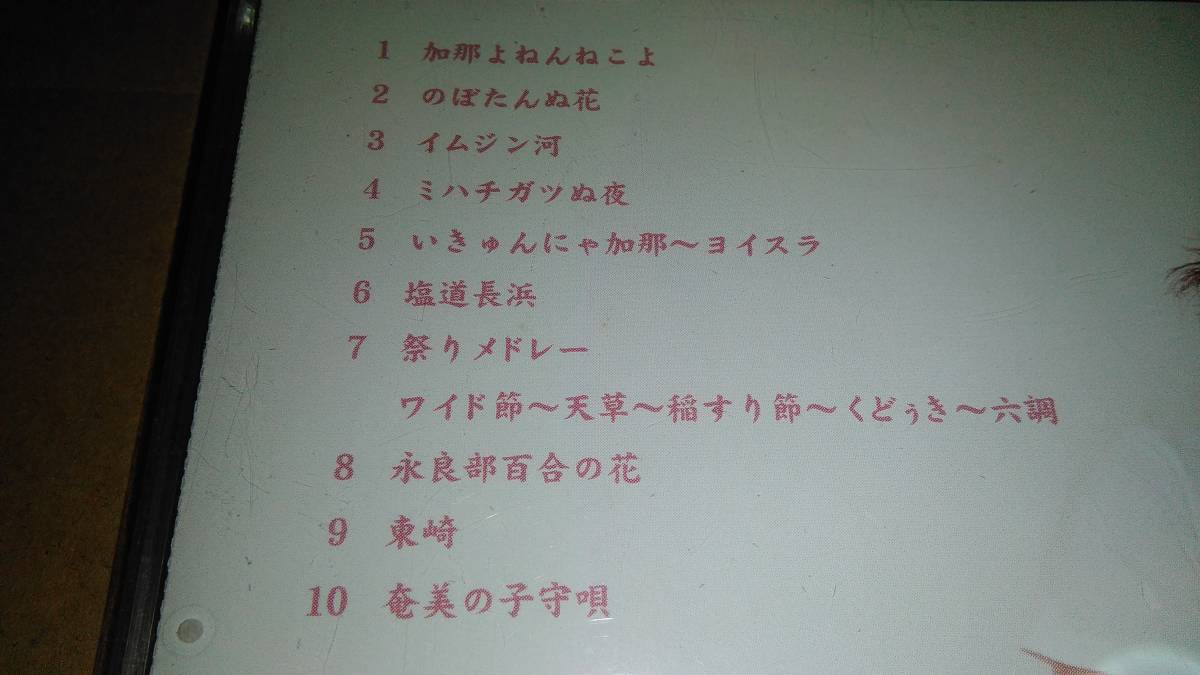 1 加那よねんねこよ
2 のぼたんぬ花
3 イムジン河
4 ミハチガツぬ夜
5 いきゅんにゃ加那～ヨイスラ
6 塩道長浜
7 祭りメドレー
ワイド節～天草～稲すり節～くどぅき～六調
8 永良部百合の花
9 東崎
10 奄美の子守唄